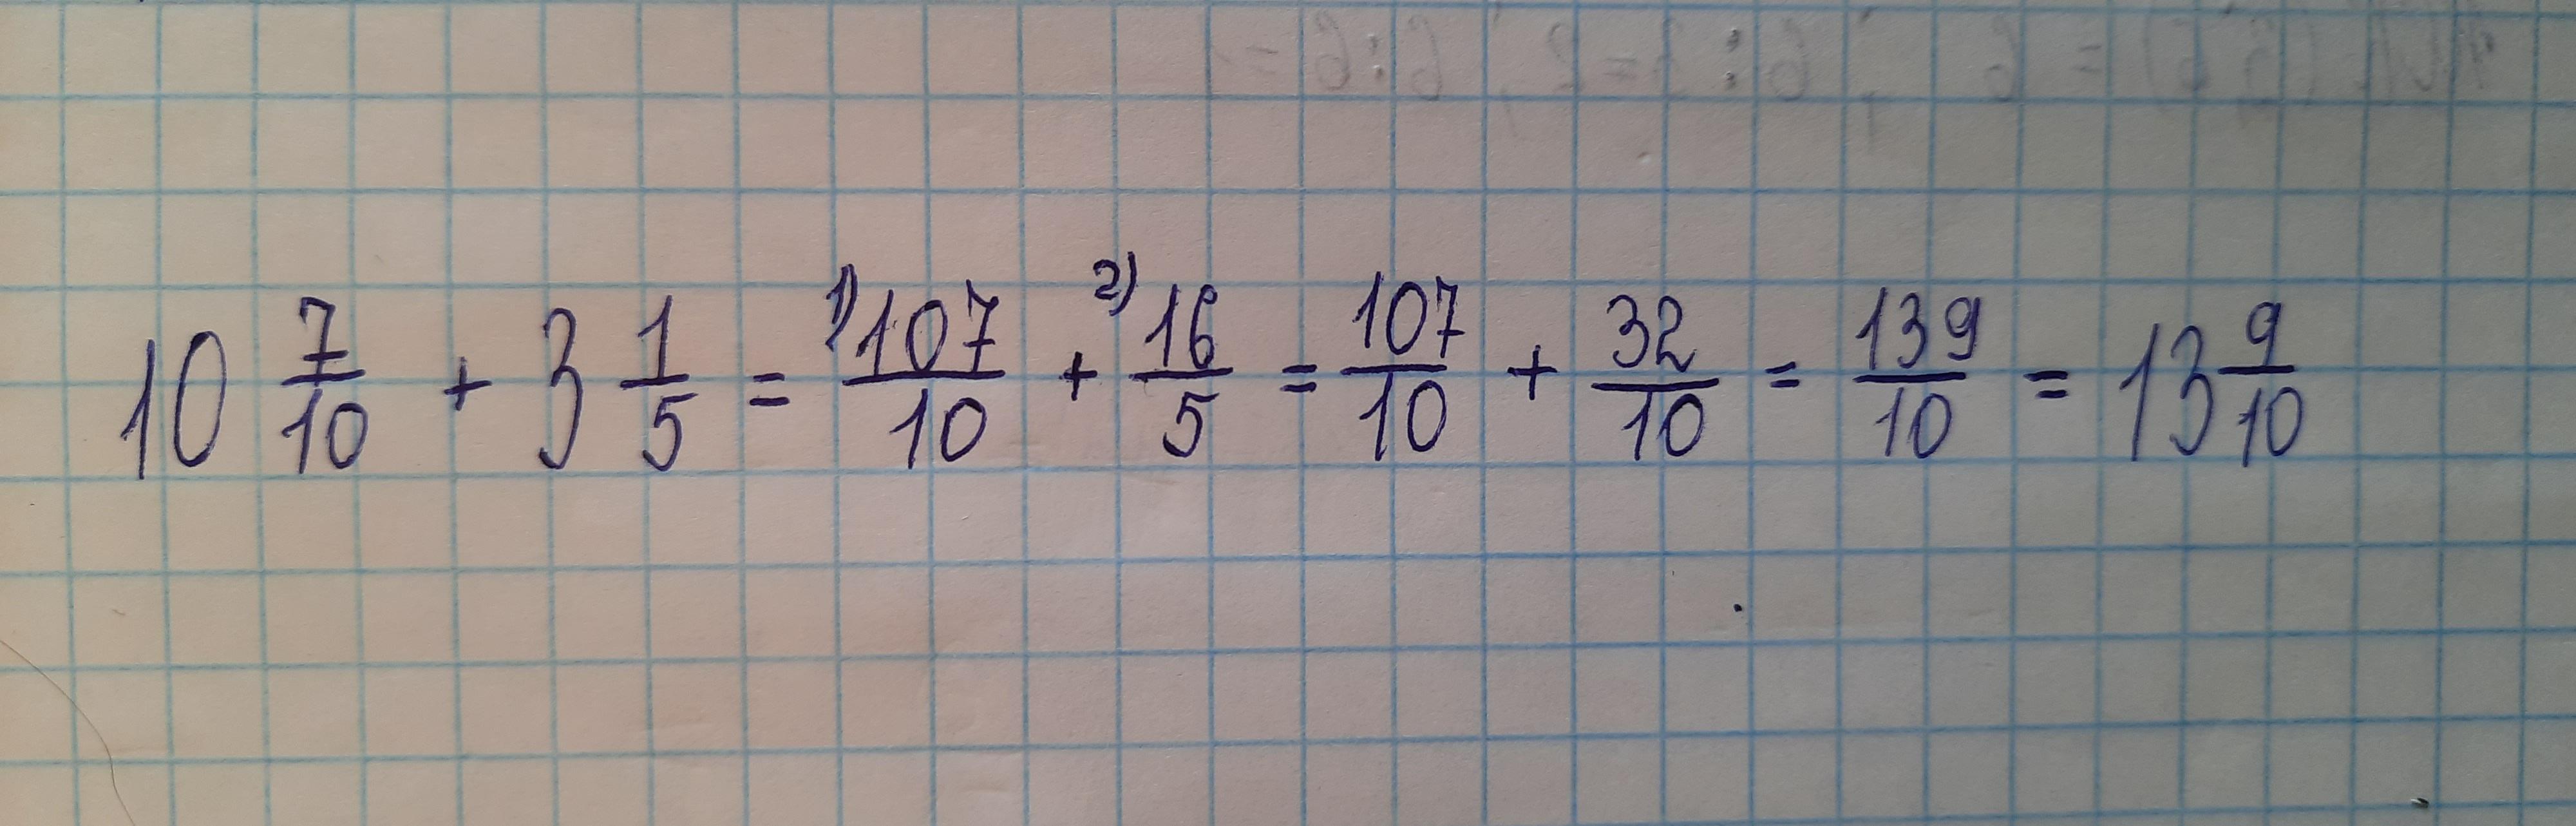 10 7/10 + 3 1/5 = 1) 107/10 + 2) 16/5 = 107/10 + 32/10 = 139/10 = 13 9/10